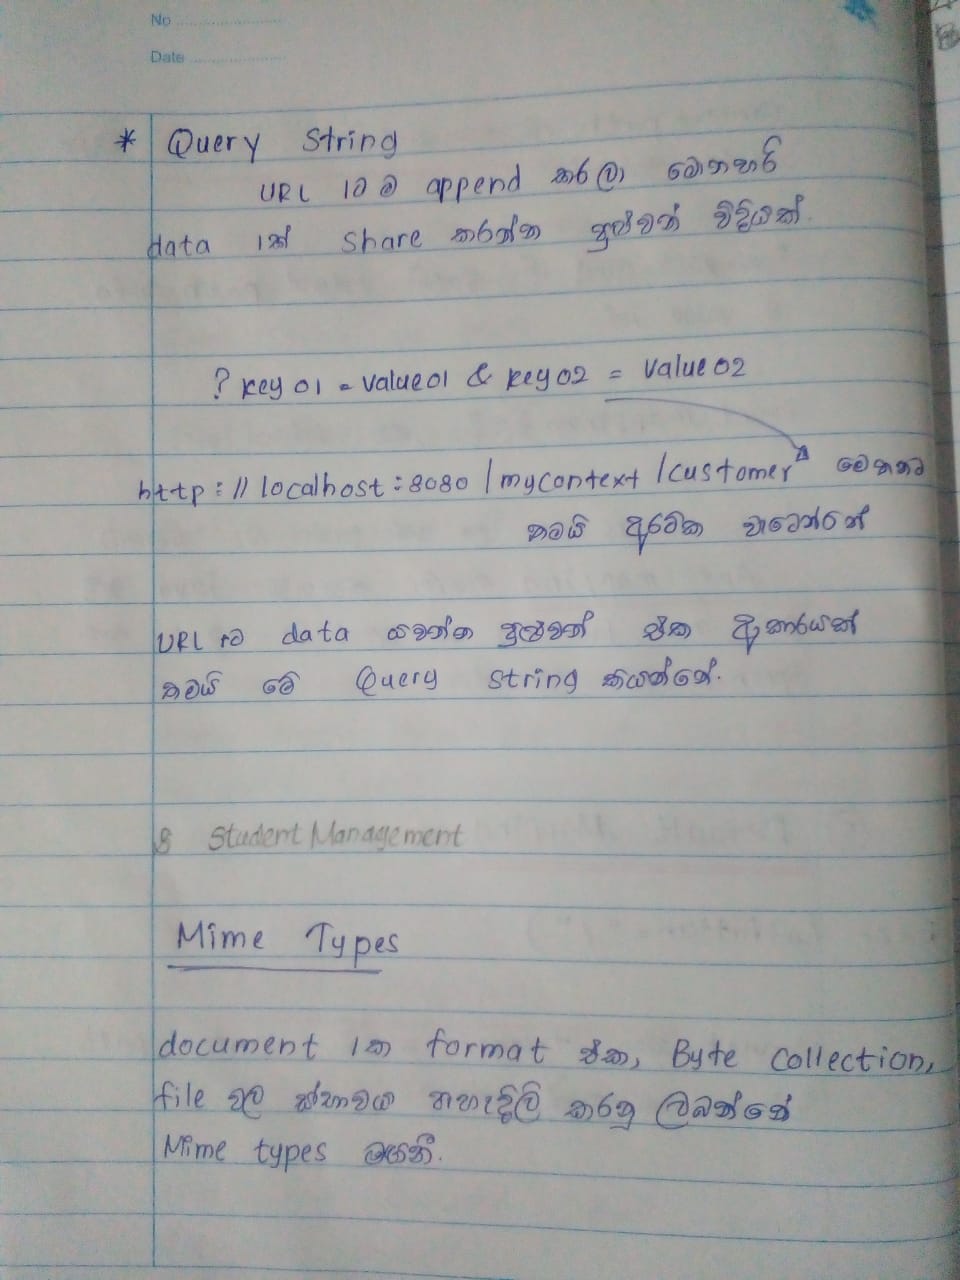 No
Date
* Query String
URL 1ට ම append කරලා මොනහරි
data 1ක් share කරන්න පුළුවන් විදියක්.
? key 01 = value01 & key 02 = value 02
http://localhost:8080/mycontext/customer මෙතනට
තමයි අරටික වැටෙන්නේ
URL 1ට data යවන්න පුළුවන් එක ආකාරයක්
තමයි මේ Query string කියන්නේ.
8 Student Management
Mime Types
document 1ක format එක, Byte collection,
file වල ස්භාවය පහැදිලි කරනු ලබන්නේ
Mime types මඟිනි.